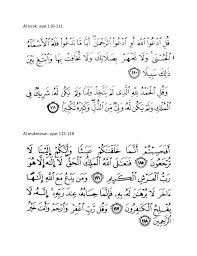 Al israk: ayat 110-111
قُلِ ٱدْعُوا۟ ٱللَّهَ أَوِ ٱدْعُوا۟ ٱلرَّحْمَٰنَ أَيًّا مَّا تَدْعُوا۟ فَلَهُ ٱلْأَسْمَآءُ
ٱلْحُسْنَىٰ وَلَا تَجْهَرْ بِصَلَاتِكَ وَلَا تُخَافِتْ بِهَا وَٱبْتَغِ بَيْنَ
ذَٰلِكَ سَبِيلًا ١١٠
وَقُلِ ٱلْحَمْدُ لِلَّهِ ٱلَّذِى لَمْ يَتَّخِذْ وَلَدًا وَلَمْ يَكُن لَّهُۥ شَرِيكٌ فِى
ٱلْمُلْكِ وَلَمْ يَكُن لَّهُۥ وَلِىٌّ مِّنَ ٱلذُّلِّ وَكَبِّرْهُ تَكْبِيرًا ١١١
Al mukminun: ayat 115-118
أَفَحَسِبْتُمْ أَنَّمَا خَلَقْنَٰكُمْ عَبَثًا وَأَنَّكُمْ إِلَيْنَا لَا
تُرْجَعُونَ ١١٥ فَتَعَٰلَى ٱللَّهُ ٱلْمَلِكُ ٱلْحَقُّ لَآ إِلَٰهَ إِلَّا هُوَ
رَبُّ ٱلْعَرْشِ ٱلْكَرِيمِ ١١٦ وَمَن يَدْعُ مَعَ ٱللَّهِ إِلَٰهًا ءَاخَرَ
لَا بُرْهَٰنَ لَهُۥ بِهِۦ فَإِنَّمَا حِسَابُهُۥ عِندَ رَبِّهِۦٓ إِنَّهُۥ لَا
يُفْلِحُ ٱلْكَٰفِرُونَ ١١٧ وَقُل رَّبِّ ٱغْفِرْ وَٱرْحَمْ وَأَنتَ خَيْرُ
ٱلرَّٰحِمِينَ ١١٨